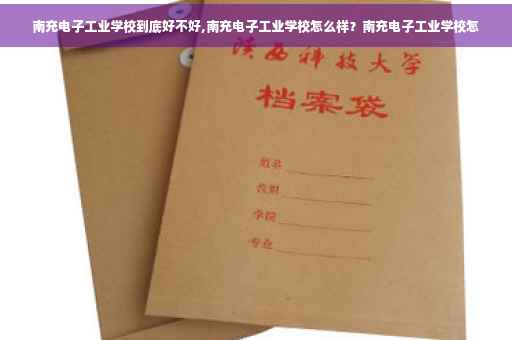 南充电子工业学校到底好不好,南充电子工业学校怎么样？南充电子工业学校怎
陕西科技大学
档案袋
姓名
学院
专业